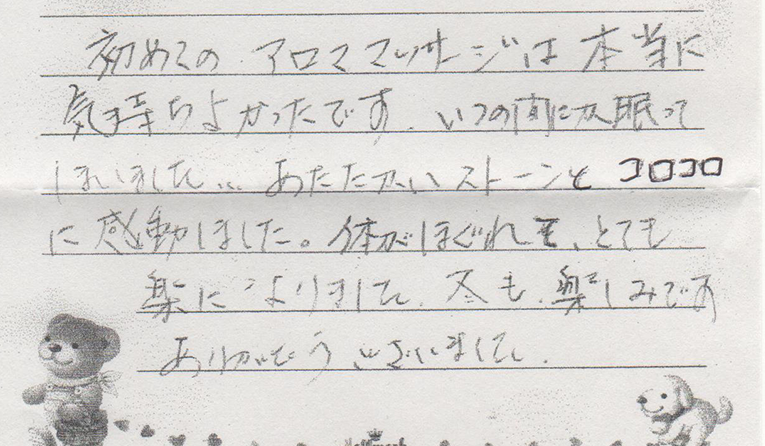 初めての アロママッサージは 本当に
気持ちよかったです. いつの間にか眠って
しまいました... あたたかいストーンと コロコロ
に感動しました。体がほぐれて、とても
楽になりました. 冬も 楽しみです
ありがとうございました.
Hallmark